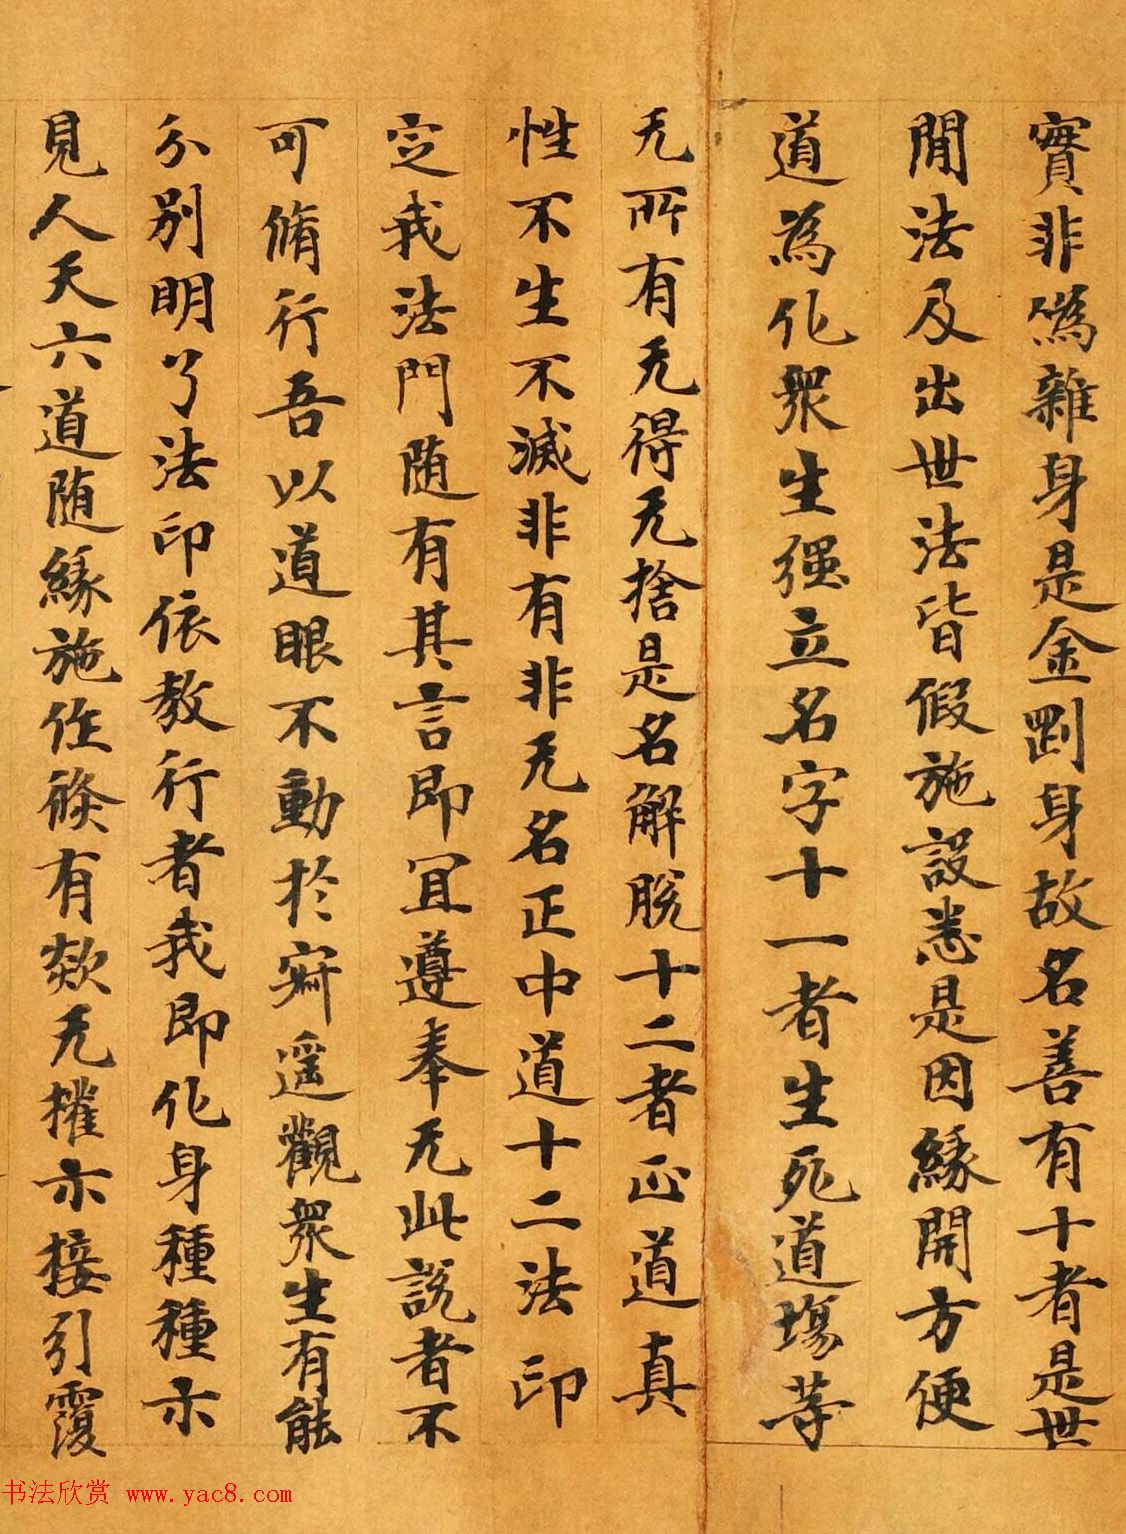 實非偽雜身是金剛身故名善有十者是世
閒法及出世法皆假施設悉是因緣開方便
道為化眾生强立名字十一者生死道場等
无所有无得无捨是名解脫十二者正道真
性不生不滅非有非无名正中道十二法印
定我法門随有其言即宜遵奉无此說者不
可脩行吾以道眼不動於寂遥觀眾生有能
分別明了法印依教行者我即化身種種示
見人天六道随緣施作倏有欻无權示接引覆
书法欣赏 www.yac8.com